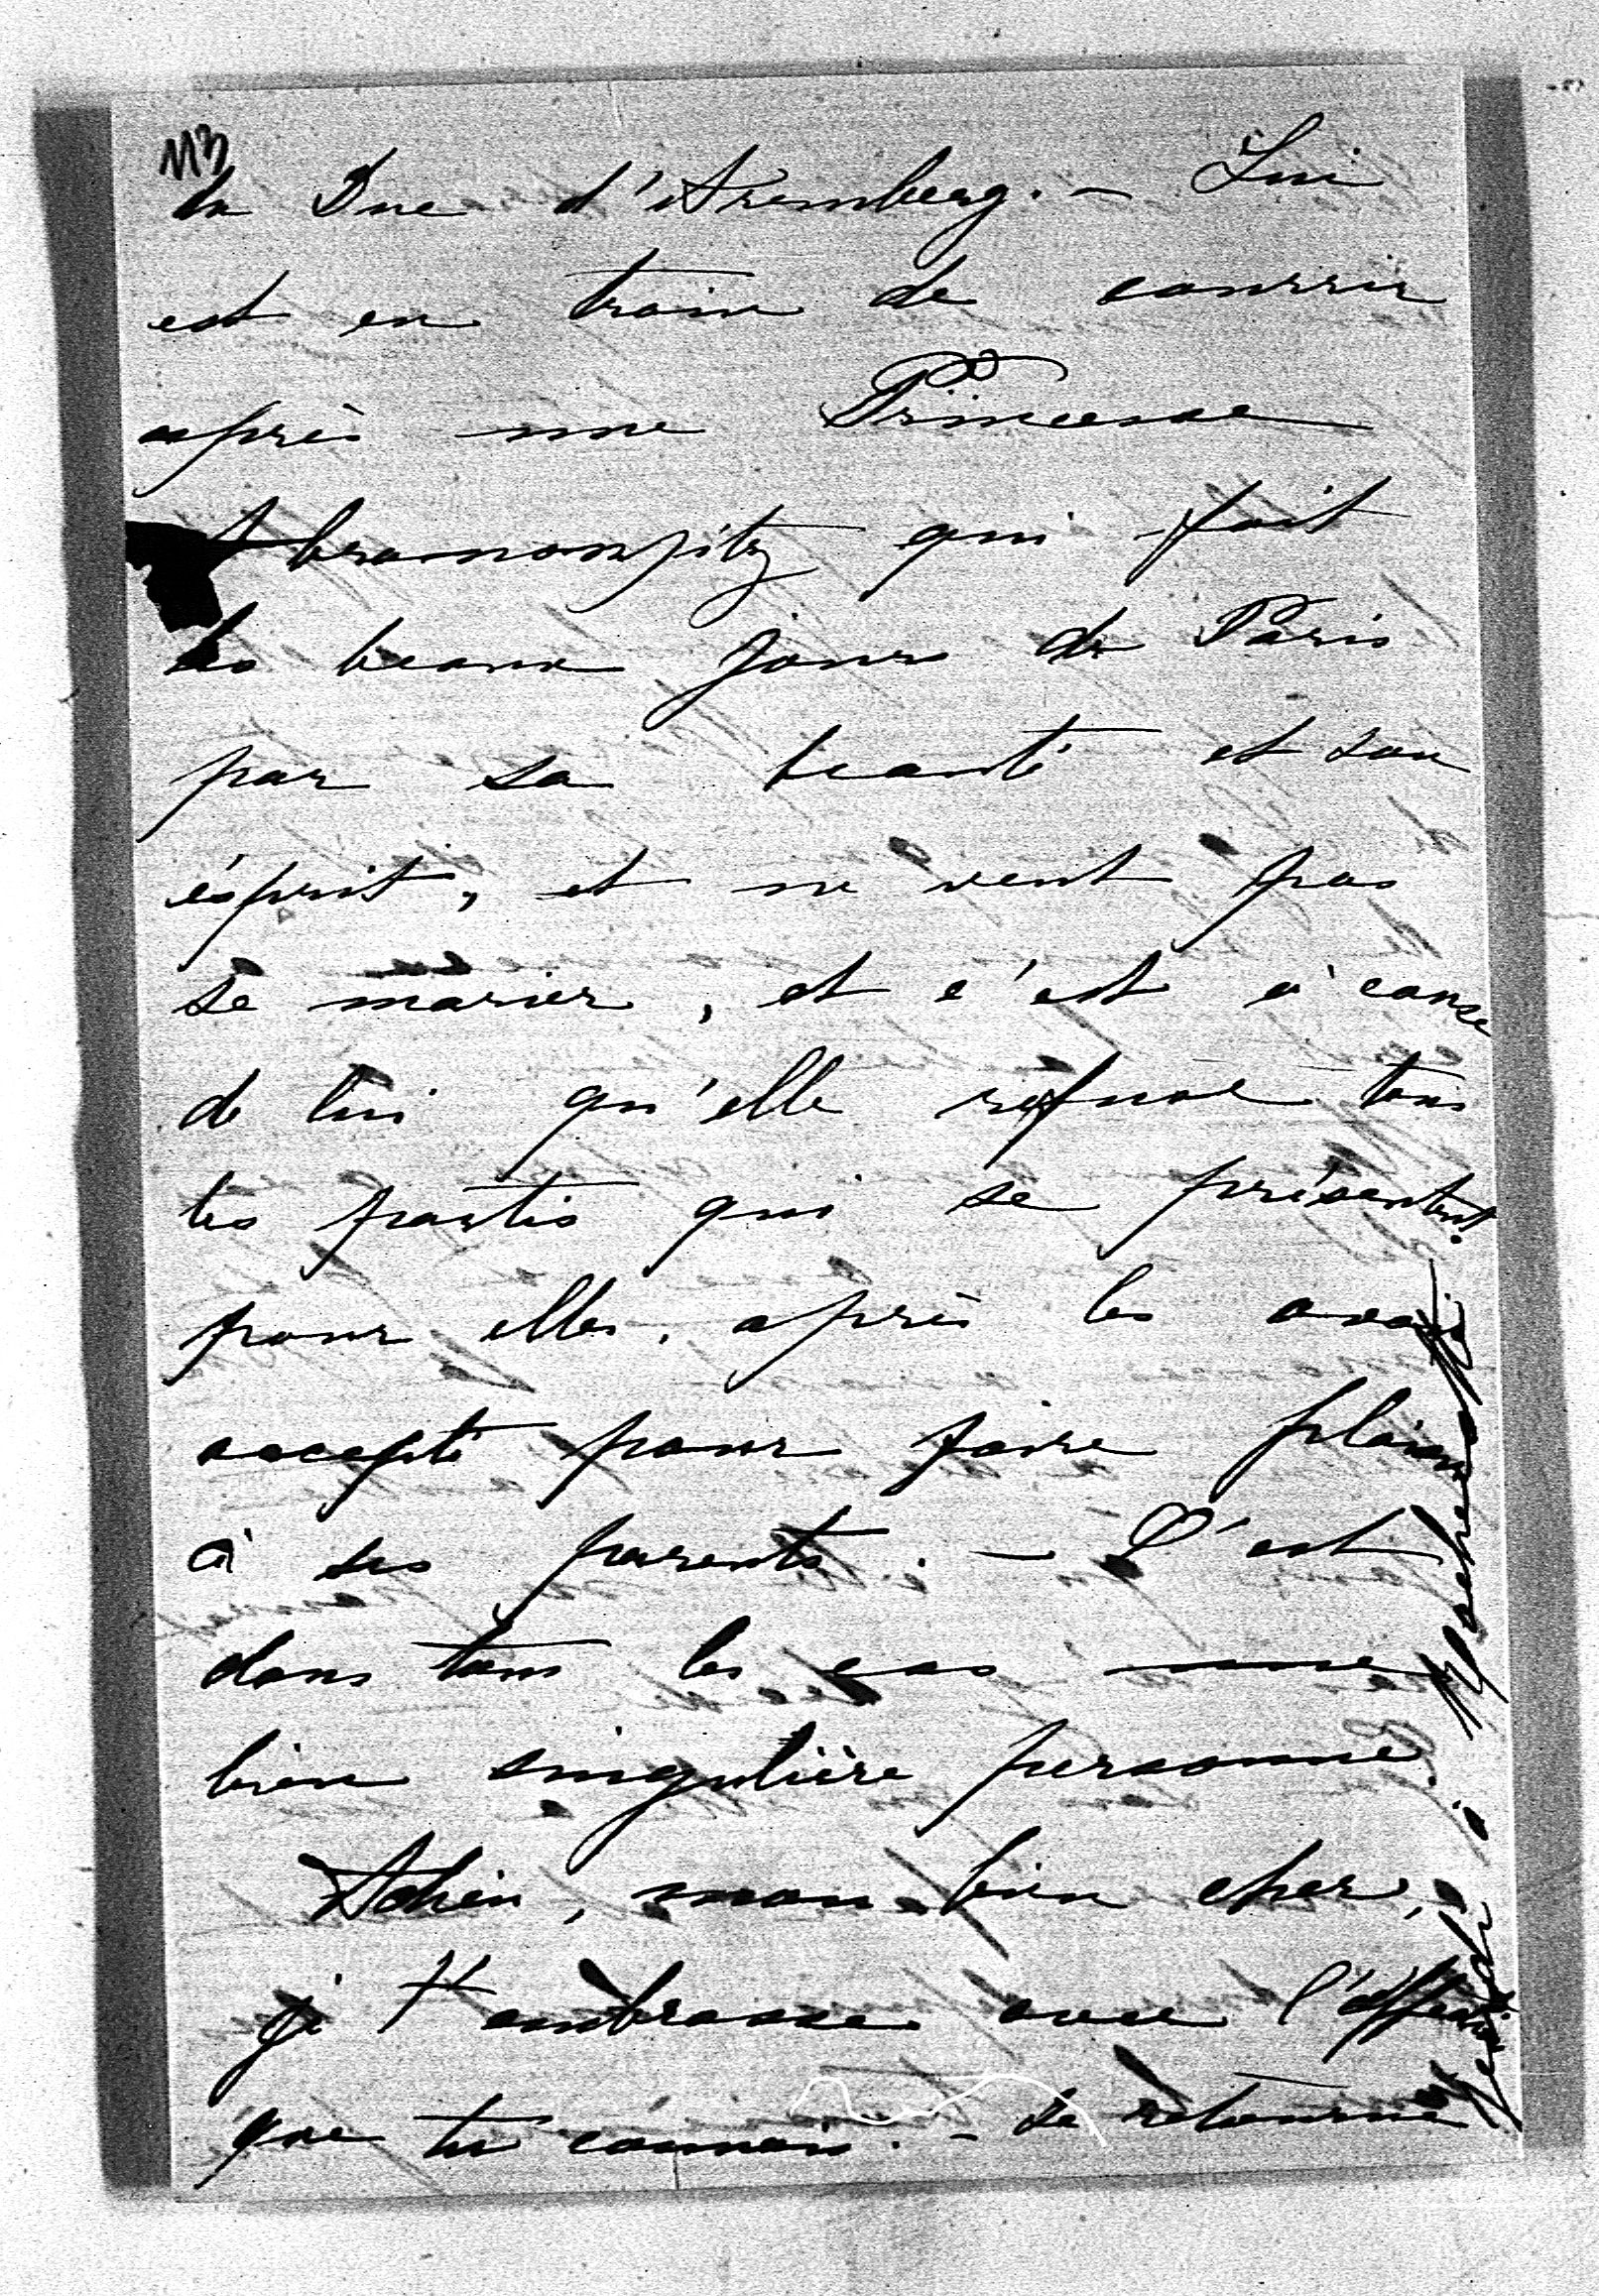 113
du Duc d'Aremberg. — Lui
est en train de courrir
après une Princesse
qui fait
les beaux jours de Paris
par sa beauté et son
ésprit, et ne veut pas
se marier, et c'est à cause
de lui qu'elle refuse tous
les partis qui se présentent.
pour elles, après les avoir
accepté pour faire plaisir
à ses parents. — C'est
dans tous les cas une
bien singulière personne.
Adieu, mon bien cher,
je t'embrasse avec l'affection
que tu connais. — Je retourne